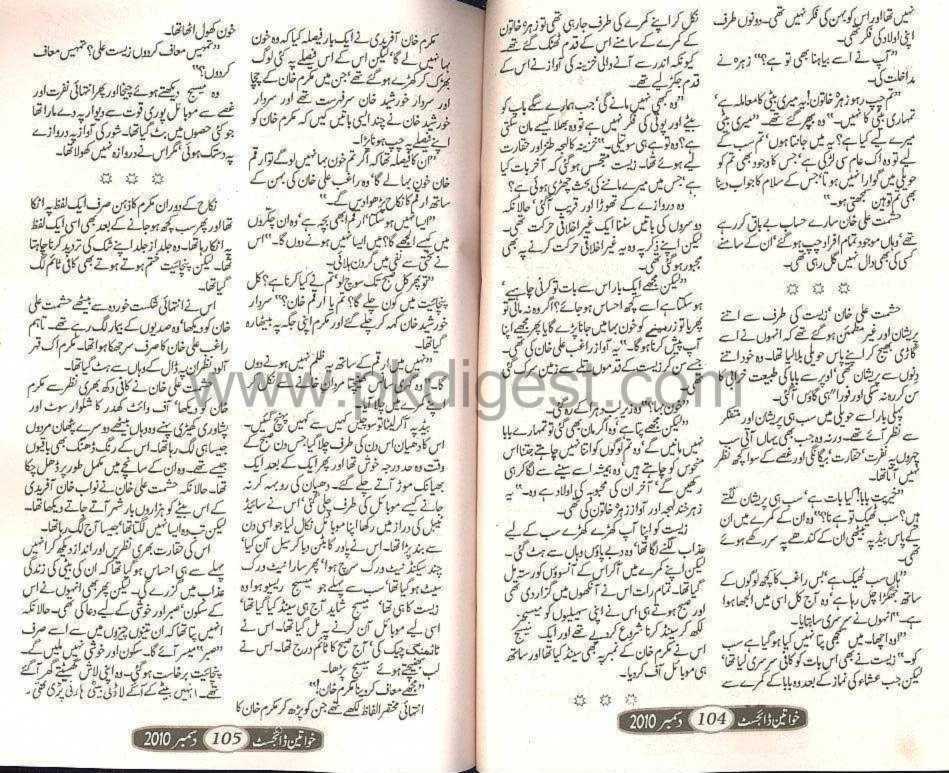 نہیں تھا اور اس کو بہن کی فکر نہیں تھی۔ دونوں طرف
اپنی اولاد کی فکر تھی۔
"آپ نے اسے بیاہنا بھی تو ہے؟" زہرہ نے
مداخلت کی۔
"تم چپ رہو زہرہ خاتون! یہ میری بیٹی کا معاملہ ہے'
تمہاری بیٹی کا نہیں۔" وہ بپھر گئے تھے۔ "میری بیٹی
میرے لیے کیا ہے؟ یہ میں جانتا ہوں' تم سب کے
لیے تو وہ اک عام سی لڑکی ہے' جس کا وجود بھی تم کو
حویلی میں گوارا نہیں ہوتا' جس کے سلام کا جواب دینا
بھی تم توہین سمجھتی ہو۔"
حشمت علی خان سارے حساب بے باق کر رہے
تھے' وہاں موجود تمام افراد چپ ہو گئے' ان کے سامنے
کسی کی بھی دال نہیں گل رہی تھی۔
حشمت علی خان' زیست کی طرف سے اتنے
پریشان اور غیر مطمئن ہو گئے تھے کہ انہوں نے اسے
گاڑی بھیج کر اپنے پاس حویلی بلا لیا تھا۔ وہ خود اتنے
دنوں سے پریشان تھی' اوپر سے بابا کی طبیعت خرابی کا
سن کر رہ نہ سکی اور فورا" ہی گاؤں آ گئی۔
پہلی بار اسے حویلی میں سب ہی پریشان اور متفکر
سے نظر آئے تھے۔ ورنہ وہ جب بھی یہاں آئی سب
چہروں پہ نفرت' حقارت' بیگانگی اور غصے کے سوا کچھ نظر
نہیں آتا تھا۔
"خیریت بابا! کیا بات ہے' سب ہی پریشان لگتے
ہیں؟ سب ٹھیک تو ہے نا؟" وہ ان کے کمرے میں ان
کے پاس بیڈ پہ بیٹھی ان کے کندھے پہ سر رکھے ہوئے
تھی۔
"ہاں سب ٹھیک ہے' بس راغب کا کچھ لوگوں کے
ساتھ جھگڑا چل رہا ہے' وہ آج کل اسی میں الجھا ہوا
ہے۔" انہوں نے سرسری سا بتایا۔
"اوہ اچھا۔ میں سمجھی پتا نہیں کیا ہو گیا ہے سب
کو۔" زیست نے بھی اس بات کو کافی سرسری لیا تھا'
لیکن جب عشاء کی نماز کے بعد وہ بابا کے کمرے سے
نکل کر اپنے کمرے کی طرف جا رہی تھی تو زہرہ خاتون
کے کمرے کے سامنے اس کے قدم ٹھٹک گئے تھے
کیونکہ اندر سے آنے والی خزینہ کی آواز نے اس کے
قدم جکڑ لیے تھے۔
"وہ بھی نہیں مانے گی' جب ہمارے سگے باپ کو
بیٹے اور پوتی کی فکر نہیں ہے تو وہ بھلا کیسے مان سکتی
ہے؟ وہ تو ہے ہی سوتیلی۔" خزینہ کا لہجہ طنز اور حقارت
لیے ہوئے تھا۔ زیست متجسس ہو گئی کہ آخر بات کیا
ہے' جس میں میرے ماننے کی بحث چھڑی ہوئی ہے؟
وہ دروازے کے تھوڑا اور قریب آ گئی' حالانکہ
دوسروں کی باتیں سننا ایک غیر اخلاقی حرکت تھی۔
لیکن اپنے ذکر پہ وہ یہ غیر اخلاقی حرکت کرنے پہ بھی
مجبور ہو گئی تھی۔
"لیکن مجھے ایک بار اس سے بات تو کرنی چاہیے'
ہو سکتا ہے اسے کچھ احساس ہو جائے؟ اگر وہ نہ مانی تو
پھر یا تو زرمینے کو خون بہا میں جانا پڑے گا یا پھر مجھے اپنا
آپ پیش کرنا ہو گا۔" یہ آواز راغب علی خان کی تھی۔
جسے سن کر زیست کے قدموں تلے سے زمین نکل گئی
تھی۔
"خون بہا؟" وہ زیر لب دہرا کے رہ گئی۔
"لیکن مجھے پتا ہے' وہ اگر مان بھی گئی تو تمہارے بابا
نہیں مانیں گے' وہ تم لوگوں کو اتنا نہیں چاہتے جتنا اس
منحوس کو چاہتے ہیں' وہ ہمیشہ اسے سینے سے لگا کر ہی
رکھیں گے' آخر ان کی محبوبہ کی اولاد ہے وہ۔" یہ
زہر خند لہجہ اور آواز زہرہ خاتون کی تھی۔
زیست کو اپنا آپ کھڑے کھڑے سب کے لیے
عذاب لگنے لگا تھا' وہ دبے پاؤں وہاں سے ہٹ گئی۔
لیکن اپنے کمرے میں آ کر اس کے آنسوؤں کو رستہ مل
گیا تھا۔ تمام رات اس نے آنکھوں میں گزار دی تھی
اور صبح ہوتے ہی اس نے اپنی سہیلیوں کو میسجز
لکھ کر سینڈ کرنا شروع کر دیے تھے اور ایک میسج
اس نے مکرم خان کے نمبر پہ بھی سینڈ کیا تھا اور ساتھ
ہی موبائل آف کر دیا۔
خواتین ڈائجسٹ 104 دسمبر 2010
مکرم خان آفریدی نے ایک بار فیصلہ کیا کہ وہ خون
بہا نہیں لے گا' لیکن اس کے اس فیصلے پہ کئی لوگ
بھڑک کر کھڑے ہو گئے تھے' جن میں مکرم خان کے چچا
اور سردار خورشید خان سرفہرست تھے اور سردار
خورشید خان نے چند ایسی باتیں کیں کہ مکرم خان کو
اپنے فیصلے پہ چپ ہونا پڑا۔
"ان کا فیصلہ تھا کہ اگر تم خون بہا نہیں لو گے تو ارقم
خان خون بہا لے گا' وہ راغب علی خان کی بہن کے
ساتھ ارقم کا نکاح پڑھوا دیں گے۔"
"ایسا نہیں ہو سکتا' ارقم ابھی بچہ ہے' وہ ان چکروں
میں کیسے الجھے گا؟ میں ایسا نہیں ہونے دوں گا۔" اس
نے سختی سے نفی میں گردن ہلائی۔
"تو پھر کل صبح تک سوچ لو' تم نے کیا کرنا ہے؟ کل
پنچائیت میں کون چلے گا؟ تم یا ارقم خان؟" سردار
خورشید خان کہہ کر چلے گئے اور مکرم اپنی جگہ پہ بیٹھا رہ
گیا تھا۔
"نہیں ارقم کے ساتھ یہ ظلم نہیں ہونے دوں
گا۔" وہ مردانے سے نکل کر
اپنے کمرے میں چلا آیا تھا۔
بیڈ پہ آ کر لیٹا تو سوچیں کہیں سے کہیں پہنچ گئیں۔
اس کا دھیان اس دن کی طرف چلا گیا جس دن صبح کے
وقت وہ بے حد درجہ خوش تھا اور پھر ایک کے بعد ایک
بھیانک موڑ آتے چلے گئے۔ دھیان کی رو بہہ کر نہ
جانے کیسے موبائل کی طرف چلی گئی' اس نے سائیڈ
ٹیبل کی دراز میں رکھا اپنا موبائل نکال لیا جو اسی دن
سے بند پڑا تھا۔ اس نے پاور کا بٹن دبا کر سیل آن کیا'
چند سیکنڈ نیٹ ورک سرچ ہوا' پھر سارا نیٹ ورک
سیٹ ہو گیا تھا' سب سے پہلے جو میسج ریسیو ہوا وہ
زیست کا ہی تھا' میسج شاید آج ہی سینڈ کیا گیا تھا'
اسی لیے موبائل آن کرنے پہ مل گیا تھا۔ اس نے
ٹائمنگ چیک کی' آج صبح کا ٹائم درج تھا۔ اس نے
لب بھینچتے ہوئے میسج پڑھا۔
"مجھے معاف کر دینا مکرم خان!"
انتہائی مختصر الفاظ لکھے تھے جن کو پڑھ کر مکرم خان کا
خون کھول اٹھا تھا۔
"تمہیں معاف کر دوں زیست علی؟ تمہیں معاف
کر دوں؟"
وہ میسج دیکھتے ہوئے چیخا اور پھر انتہائی نفرت اور
غصے سے موبائل پوری قوت سے دیوار پہ دے مارا تھا
جو کئی حصوں میں بٹ گیا تھا۔ شور کی آواز پہ دروازے
پہ دستک ہوئی' مگر اس نے دروازہ نہیں کھولا تھا۔
نکاح کے دوران مکرم کا ذہن صرف ایک لفظ پہ اٹکا
تھا اور پھر سب کچھ ہو جانے کے بعد بھی اسی ایک لفظ
پہ اٹکا رہا تھا۔ وہ جلد از جلد اپنے شک کی تردید کرنا چاہتا
تھا۔ لیکن پنچائیت ختم ہوتے ہوتے بھی کافی ٹائم لگ
گیا تھا۔
اس نے انتہائی شکست خوردہ سے بیٹھے حشمت علی
خان کو دیکھا' وہ صدیوں کے بیمار لگ رہے تھے۔ تاہم
راغب علی خان کا صرف سر جھکا ہوا تھا۔ مکرم اک قہر
آلود نظر ان پہ ڈال کے وہاں سے ہٹ گیا تھا۔
حشمت علی خان نے کافی دکھ بھری نظر سے مکرم
خان کو دیکھا' آف وائٹ کھدر کا شلوار سوٹ اور
پشاوری کھیڑی پہنے وہ وہاں بیٹھے دوسرے پٹھان مردوں
جیسا ہی لگ رہا تھا۔ اس کے رنگ ڈھنگ بھی باقیوں
جیسے تھے۔ وہ ان کے سانچے میں مکمل طور پر ڈھل چکا
تھا۔ حالانکہ حشمت علی خان نے نواب خان آفریدی
کے اس بیٹے کو ہزاروں بار شہر آتے جاتے دیکھا تھا۔
لیکن تب وہ ایسا نہیں لگتا تھا' جیسا آج لگ رہا تھا۔
اس کی حقارت بھری نظریں اور انداز دیکھ کر انہیں
پہلے سے ہی احساس ہو گیا تھا کہ ان کی بیٹی کی زندگی
عذاب میں گزرے گی۔ لیکن پھر بھی انہوں نے اس
کے سکون' صبر اور خوشی کے لیے دعا کی تھی۔ حالانکہ
انہیں پتا تھا کہ ان تینوں چیزوں میں سے اسے صرف
"صبر" میسر آئے گا۔ سکون اور خوشی نہیں ملیں گے۔
پنچائیت برخاست ہو گئی۔ وہ اپنی لاش گھسیٹتے گھر آ گئے
تھے۔ انہیں بیٹے کے آگے لاڈلی بیٹی ہارنی پڑی تھی۔
خواتین ڈائجسٹ 105 دسمبر 2010
www.pkdigest.com